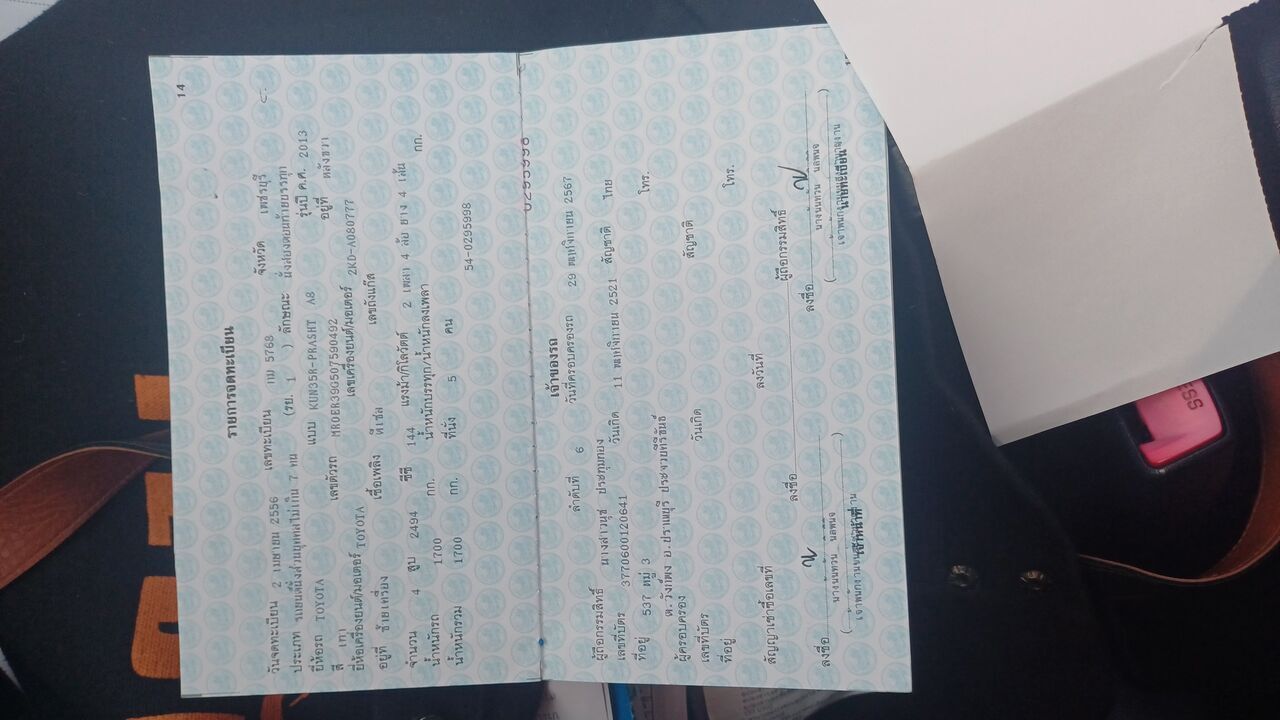 14
รายการจดทะเบียน
วันจดทะเบียน 2 เมษายน 2556 เลขทะเบียน กม 5768 จังหวัด เพชรบุรี
ประเภท รถยนต์นั่งส่วนบุคคลไม่เกิน 7 คน (รย. 1 ) ลักษณะ นั่งสองตอนท้ายบรรทุก
ยี่ห้อรถ TOYOTA แบบ KUN35R-PRASHT A8 รุ่นปี ค.ศ. 2013
สี เทา เลขตัวรถ MR0ER39G507590492 อยู่ที่ หลังขวา
ยี่ห้อเครื่องยนต์/มอเตอร์ TOYOTA เลขเครื่องยนต์/มอเตอร์ 2KD-A080777
อยู่ที่ ซ้ายเครื่อง เชื้อเพลิง ดีเซล เลขถังแก๊ส
จำนวน 4 สูบ 2494 ซีซี 144 แรงม้า/กิโลวัตต์ 2 เพลา 4 ล้อ ยาง 4 เส้น
น้ำหนักรถ 1700 กก. น้ำหนักบรรทุก/น้ำหนักลงเพลา กก.
น้ำหนักรวม 1700 กก. ที่นั่ง 5 คน
54-0295998
0295998
เจ้าของรถ
ลำดับที่ 6 วันที่ครอบครองรถ 29 พฤศจิกายน 2567
ผู้ถือกรรมสิทธิ์ นางสาวนุช ประกุมทอง
เลขที่บัตร 3770600120641 วันเกิด 11 พฤศจิกายน 2521 สัญชาติ ไทย
ที่อยู่ 537 หมู่ 3 โทร.
ต.วังก์พง อ.ปราณบุรี ประจวบคีรีขันธ์
ผู้ครอบครอง
เลขที่บัตร วันเกิด สัญชาติ
ที่อยู่ โทร.
สัญญาเช่าซื้อเลขที่ ลงวันที่
ลงชื่อ ผู้ถือกรรมสิทธิ์
ลงชื่อ ลงชื่อ